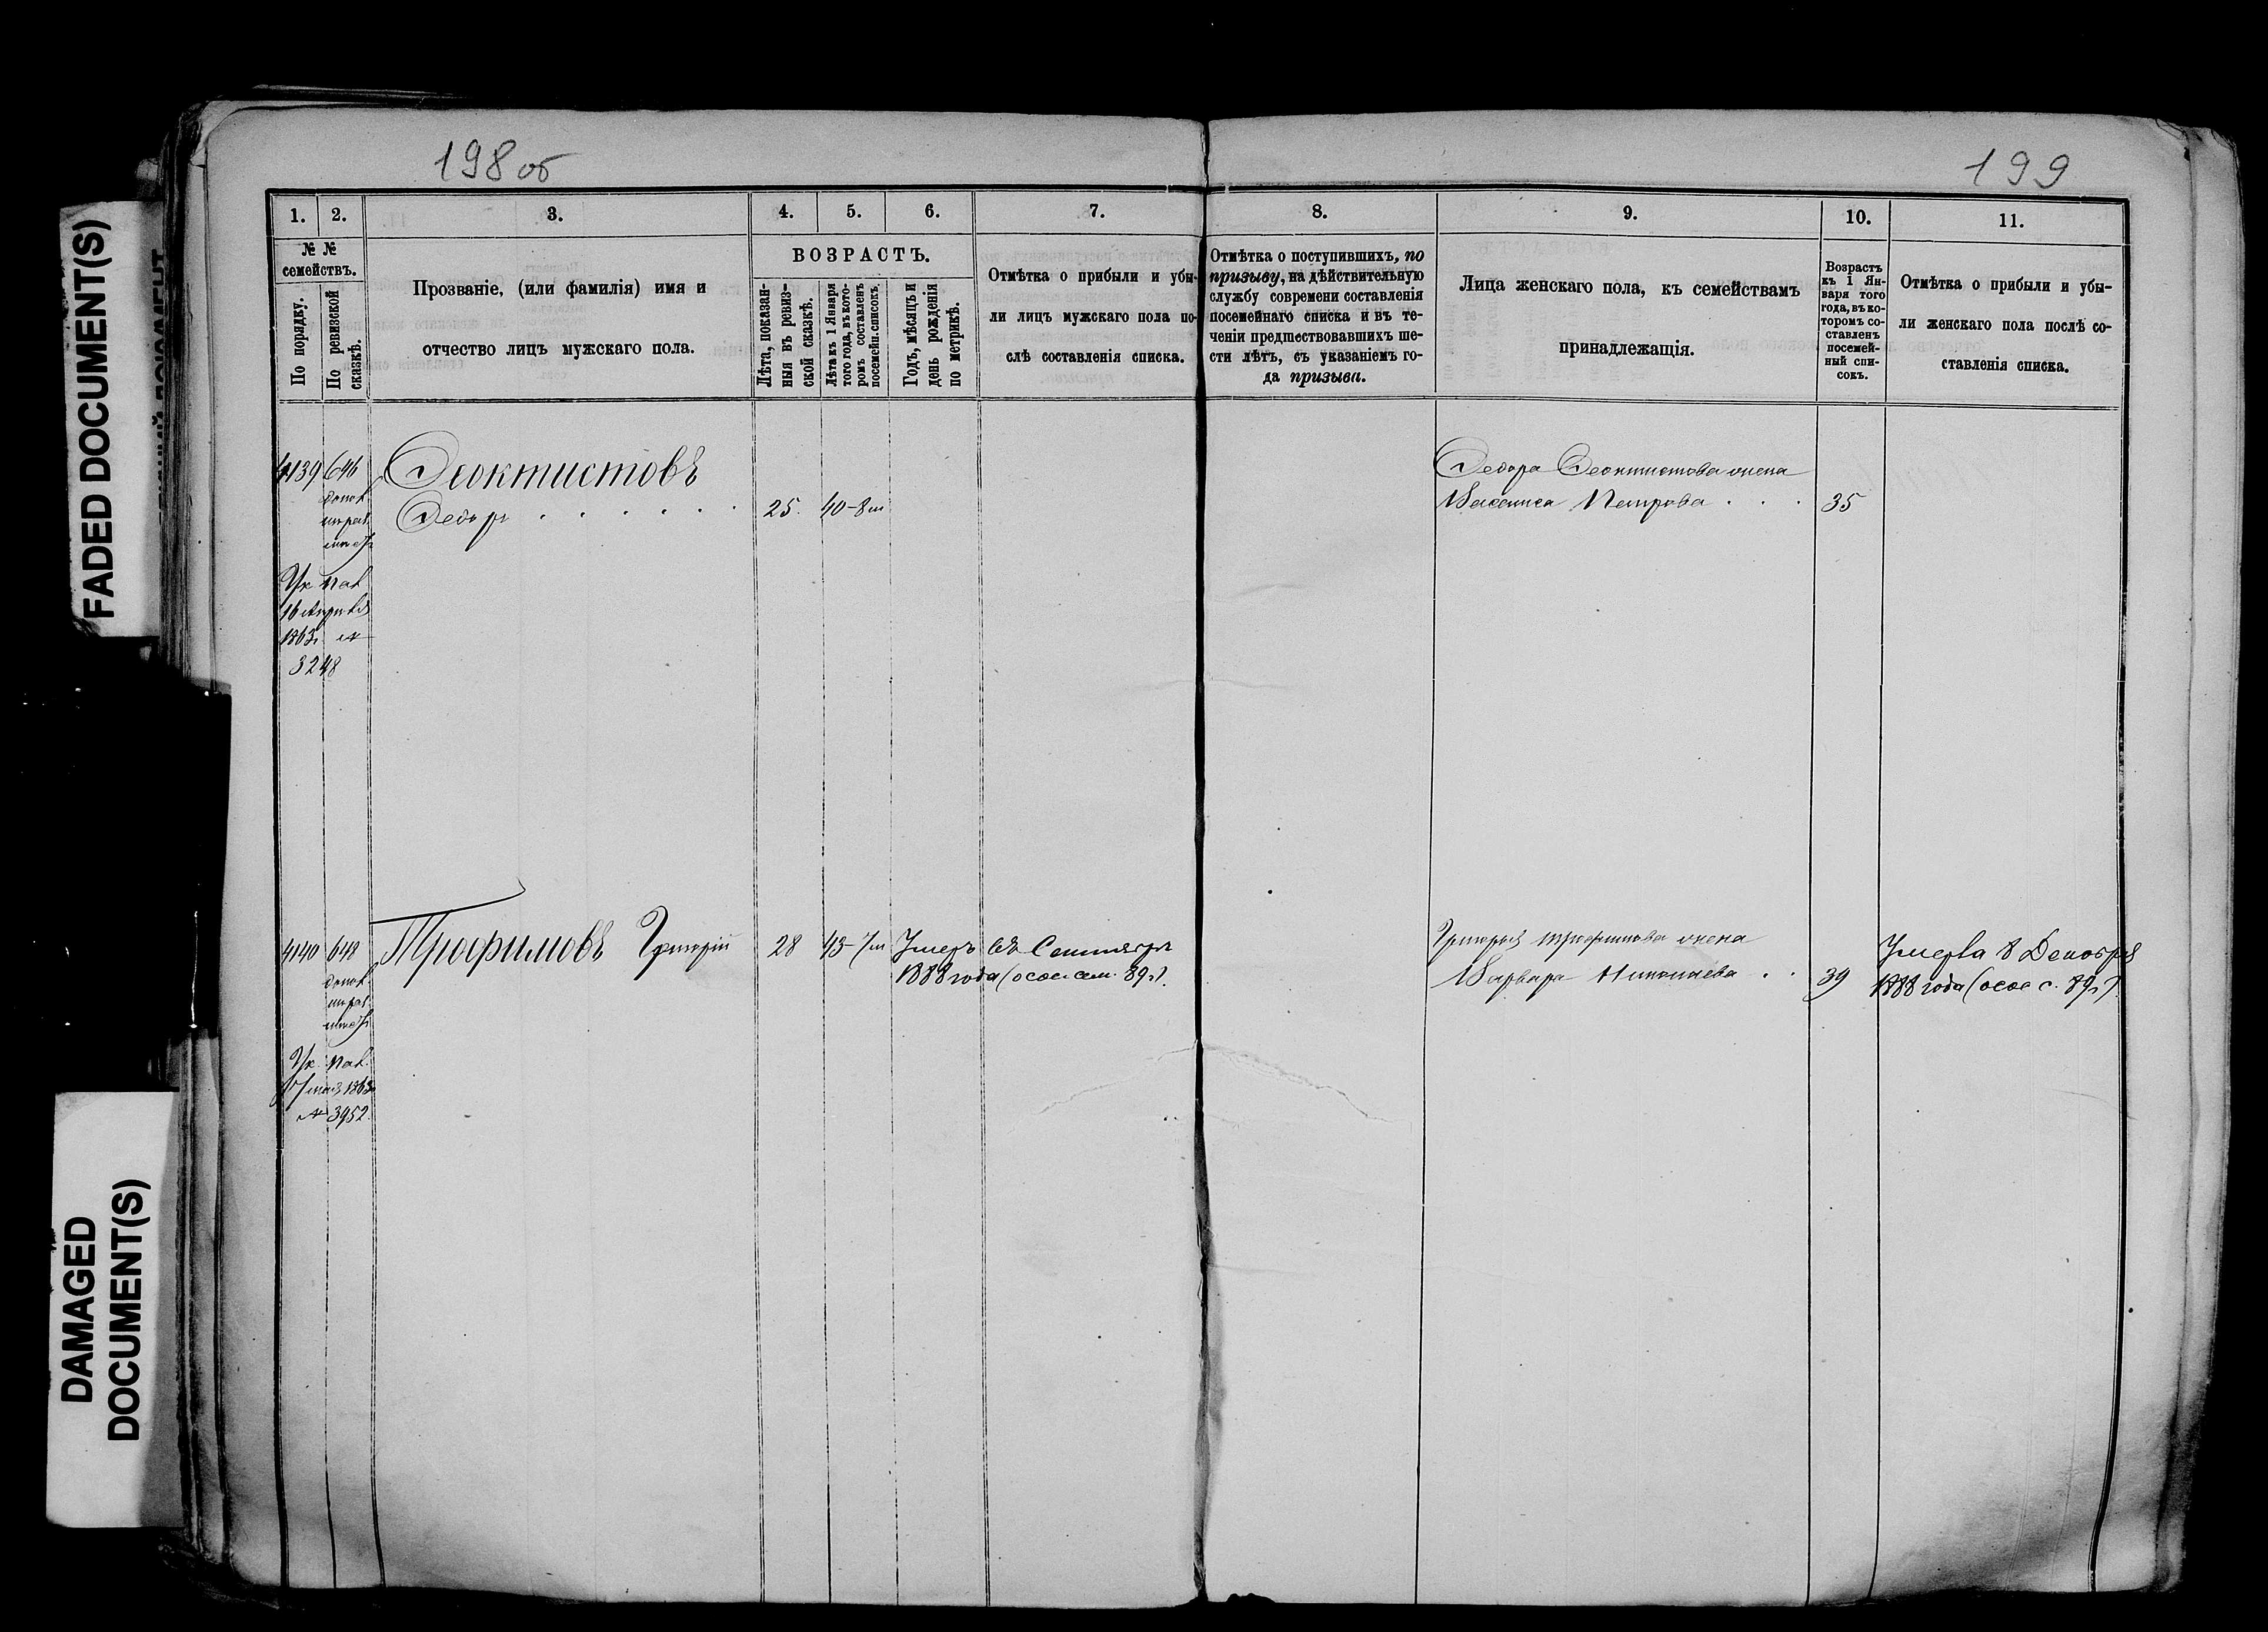 198 об
199
FADED DOCUMENT(S)
DAMAGED
DOCUMENT(S)
1. 2. 3. 4. 5. 6. 7. 8. 9. 10. 11.
№ №
семействъ.
По порядку.
По ревизской
сказкѣ.
Прозваніе, (или фамилія) имя и
отчество лицъ мужскаго пола.
ВОЗРАСТЪ.
Лѣта, показан-
ныя въ ревиз-
ской сказкѣ.
Лѣта къ 1 Января
того года, въ кото-
ромъ составленъ
посемейн. списокъ.
Годъ, мѣсяцъ и
день рожденія
по метрикѣ.
Отмѣтка о прибыли и убы-
ли лицъ мужскаго пола по-
слѣ составленія списка.
Отмѣтка о поступившихъ, по
призыву, на дѣйствительную
службу современи составленія
посемейнаго списка и въ те-
ченіи предшествовавшихъ ше-
сти лѣтъ, съ указаніемъ го-
да призыва.
Лица женскаго пола, къ семействамъ
принадлежащія.
Возрастъ
къ 1 Ян-
варя того
года, въ ко-
торомъ со-
ставленъ
посемей-
ный спи-
сокъ.
Отмѣтка о прибыли и убы-
ли женскаго пола послѣ со-
ставленія списка.
4139 646 Ѳеоктистовъ
Ѳедоръ 25. 40-8м
Ѳедора Ѳеоктистова жена
Васса Петрова 35
Ук. Пал.
16 Апрѣля
1863г. №
3248
4140 648 Трофимовъ Григорій 28 43-7м Умеръ въ Сентябрѣ
1888 года
Григорія Трофимова жена
Варвара Николаева 39
Умерла 8 Декабря
1888 года
Ук. Пал.
17 мая 1863
№ 3952.